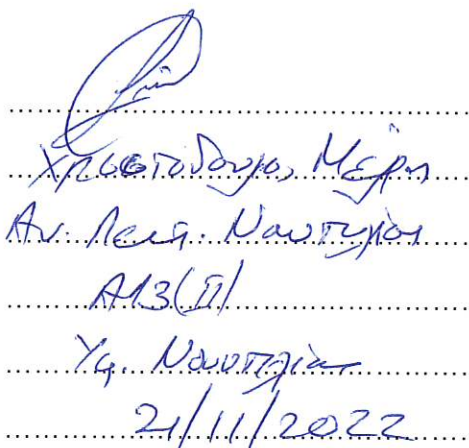 Χριστοδούλου Μαίρη
Αν. Λειτ. Ναυτιλίας
Α13(ΙΙ)
Υφ. Ναυτιλίας
21/11/2022